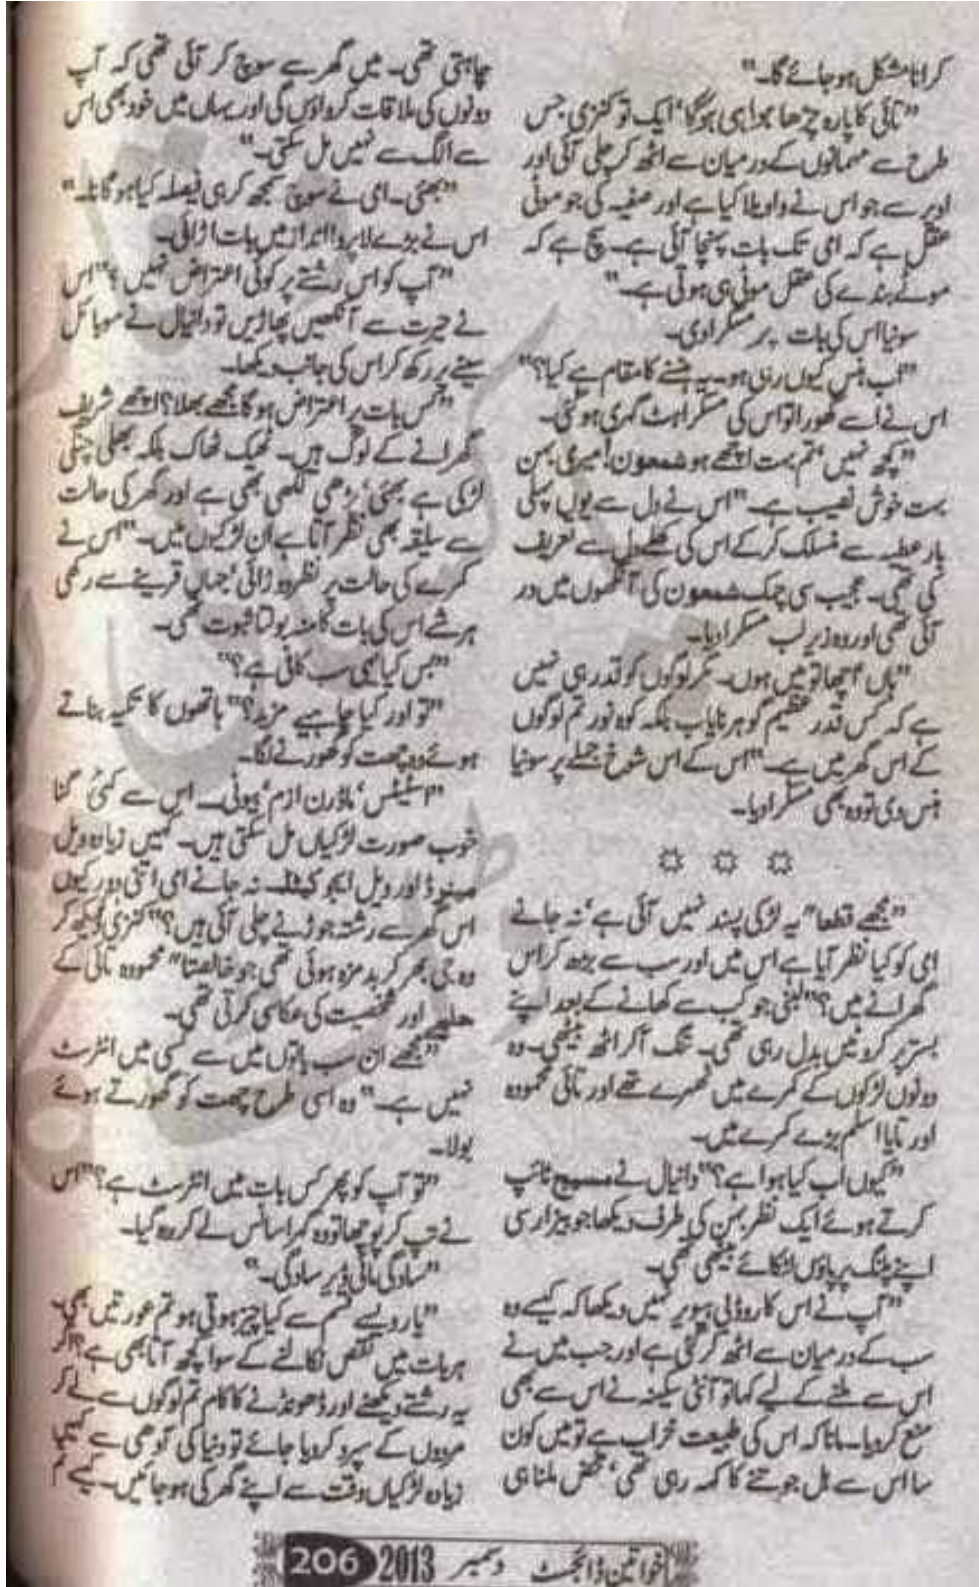 کرانا مشکل ہو جائے گا۔"
"تائی کا پارہ چڑھا ہوا ہی ہو گا' ایک تو کنزیٰ جس
طرح سے مہمانوں کے درمیان سے اٹھ کر چلی آئی اور
اوپر سے جو اس نے واویلا کیا ہے اور صفیہ کی جو موٹی
عقل ہے کہ امی تک بات پہنچا آئی ہے۔ سچ ہے کہ
موٹے بندے کی عقل موٹی ہی ہوتی ہے۔"
سونیا اس کی بات پر مسکرا دی۔
"اب ہنس کیوں رہی ہو۔ یہ ہنسنے کا مقام ہے کیا؟"
اس نے اسے گھورا تو اس کی مسکراہٹ گہری ہو گئی۔
"کچھ نہیں' تم بہت اچھے ہو شمعون! میری بہن
بہت خوش نصیب ہے۔" اس نے دل سے یوں پہلی
بار عطیہ سے منسلک کر کے اس کی کھلے دل سے تعریف
کی تھی۔ عجیب سی چمک شمعون کی آنکھوں میں در
آئی تھی اور وہ زیر لب مسکرا دیا۔
"ہاں' اچھا تو میں ہوں۔ مگر لوگوں کو قدر ہی نہیں
ہے کہ کس قدر عظیم گوہر نایاب بلکہ کوہ نور تم لوگوں
کے اس گھر میں ہے۔" اس کے اس شوخ جملے پر سونیا
ہنس دی تو وہ بھی مسکرا دیا۔
☼ ☼ ☼
"مجھے قطعاً" یہ لڑکی پسند نہیں آئی ہے' نہ جانے
امی کو کیا نظر آیا ہے اس میں اور سب سے بڑھ کر اس
گھرانے میں؟" لبنیٰ جو کب سے کھانے کے بعد اپنے
بستر پر کروٹیں بدل رہی تھی۔ تنگ آ کر اٹھ بیٹھی۔ وہ
دونوں لڑکوں کے کمرے میں ٹھہرے تھے اور تائی محمودہ
اور تایا اسلم بڑے کمرے میں۔
"کیوں اب کیا ہوا ہے؟" دانیال نے مسیج ٹائپ
کرتے ہوئے ایک نظر بہن کی طرف دیکھا جو بیزار سی
اپنے پلنگ پر پاؤں لٹکائے بیٹھی تھی۔
"آپ نے اس کا روڈلی بی ہیویر نہیں دیکھا کہ کیسے وہ
سب کے درمیان سے اٹھ کر گئی ہے اور جب میں نے
اس سے ملنے کے لیے کہا تو آنٹی سکینہ نے اس سے بھی
منع کر دیا۔ مانا کہ اس کی طبیعت خراب ہے تو میں کون
سا اس سے ہل جوتنے کا کہہ رہی تھی' محض ملنا ہی
چاہتی تھی۔ میں گھر سے سوچ کر آئی تھی کہ آپ
دونوں کی ملاقات کرواؤں گی اور یہاں میں خود بھی اس
سے الگ سے نہیں مل سکتی۔"
"بھئی۔ امی نے سوچ سمجھ کر ہی فیصلہ کیا ہو گا نا۔"
اس نے بڑے لاپروا انداز میں بات اڑائی۔
"آپ کو اس رشتے پر کوئی اعتراض نہیں؟" اس
نے حیرت سے آنکھیں پھاڑیں تو دانیال نے موبائل
سینے پر رکھ کر اس کی جانب دیکھا۔
"کس بات پر اعتراض ہو گا مجھے بھلا؟ اچھے شریف
گھرانے کے لوگ ہیں۔ ٹھیک ٹھاک بلکہ بھلی چنگی
لڑکی ہے بھئی' پڑھی لکھی بھی ہے اور گھر کی حالت
سے سلیقہ بھی نظر آتا ہے ان لڑکیوں میں۔" اس نے
کمرے کی حالت پر نظر دوڑائی' جہاں قرینے سے رکھی
ہر شے اس کی بات کا منہ بولتا ثبوت تھی۔
"بس کیا یہی سب کافی ہے؟"
"تو اور کیا چاہیے مزید؟" ہاتھوں کا تکیہ بناتے
ہوئے وہ چھت کو گھورنے لگا۔
"اسٹیٹس' ماڈرن ازم' بیوٹی۔ اس سے کئی گنا
خوب صورت لڑکیاں مل سکتی ہیں۔ کہیں زیادہ ویل
مینرڈ اور ویل ایجوکیٹڈ۔ نہ جانے امی اتنی دور کیوں
اس گھر سے رشتہ جوڑنے چلی آئی ہیں؟" کنزیٰ کو دیکھ کر
وہ جی بھر کر بدمزہ ہوئی تھی جو خالصتاً" محمودہ تائی کے
حلیے اور شخصیت کی عکاسی کرتی تھی۔
"مجھے ان سب باتوں میں سے کسی میں انٹرسٹ
نہیں ہے۔" وہ اسی طرح چھت کو گھورتے ہوئے
بولا۔
"تو آپ کو پھر کس بات میں انٹرسٹ ہے؟" اس
نے تپ کر پوچھا تو وہ گہرا سانس لے کر رہ گیا۔
"سادگی مائی ڈیر سادگی۔"
"یار ویسے قسم سے کیا چیز ہوتی ہو تم عورتیں بھی۔
ہر بات میں نقص نکالنے کے سوا کچھ آتا بھی ہے؟ اگر
یہ رشتے دیکھنے اور ڈھونڈنے کا کام تم لوگوں سے لے کر
مردوں کے سپرد کر دیا جائے تو دنیا کی آدھی سے کہیں
زیادہ لڑکیاں وقت سے اپنے گھر کی ہو جائیں۔ کیسے تم
خواتین ڈائجسٹ دسمبر 2013 206